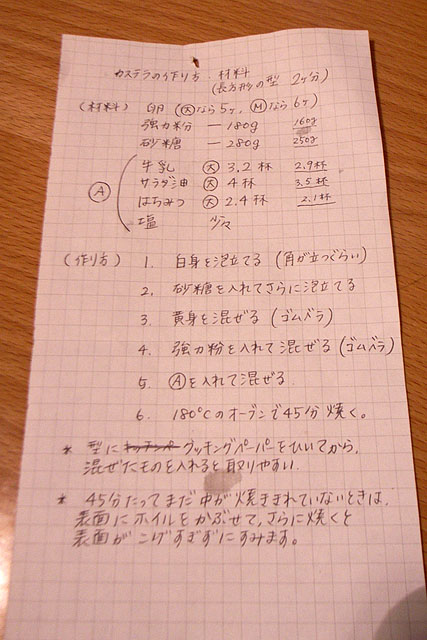 カステラの作り方 材料
(長方形の型 2ヶ分)
(材料) 卵 (大なら5ヶ, Mなら6ヶ)
強力粉 — 180g 160g
砂糖 — 280g 250g
A
牛乳 大 3.2杯 2.9杯
サラダ油 大 4杯 3.5杯
はちみつ 大 2.4杯 2.1杯
塩 少々
(作り方) 1. 白身を泡立てる (角が立つぐらい)
2. 砂糖を入れてさらに泡立てる
3. 黄身を混ぜる (ゴムベラ)
4. 強力粉を入れて混ぜる (ゴムベラ)
5. Aを入れて混ぜる
6. 180℃のオーブンで45分焼く。
* 型に クッキングペーパーをひいてから、
混ぜたものを入れると取りやすい.
* 45分たってまだ中が焼ききれていないときは,
表面にホイルをかぶせて,さらに焼くと
表面がこげすぎずにすみます。